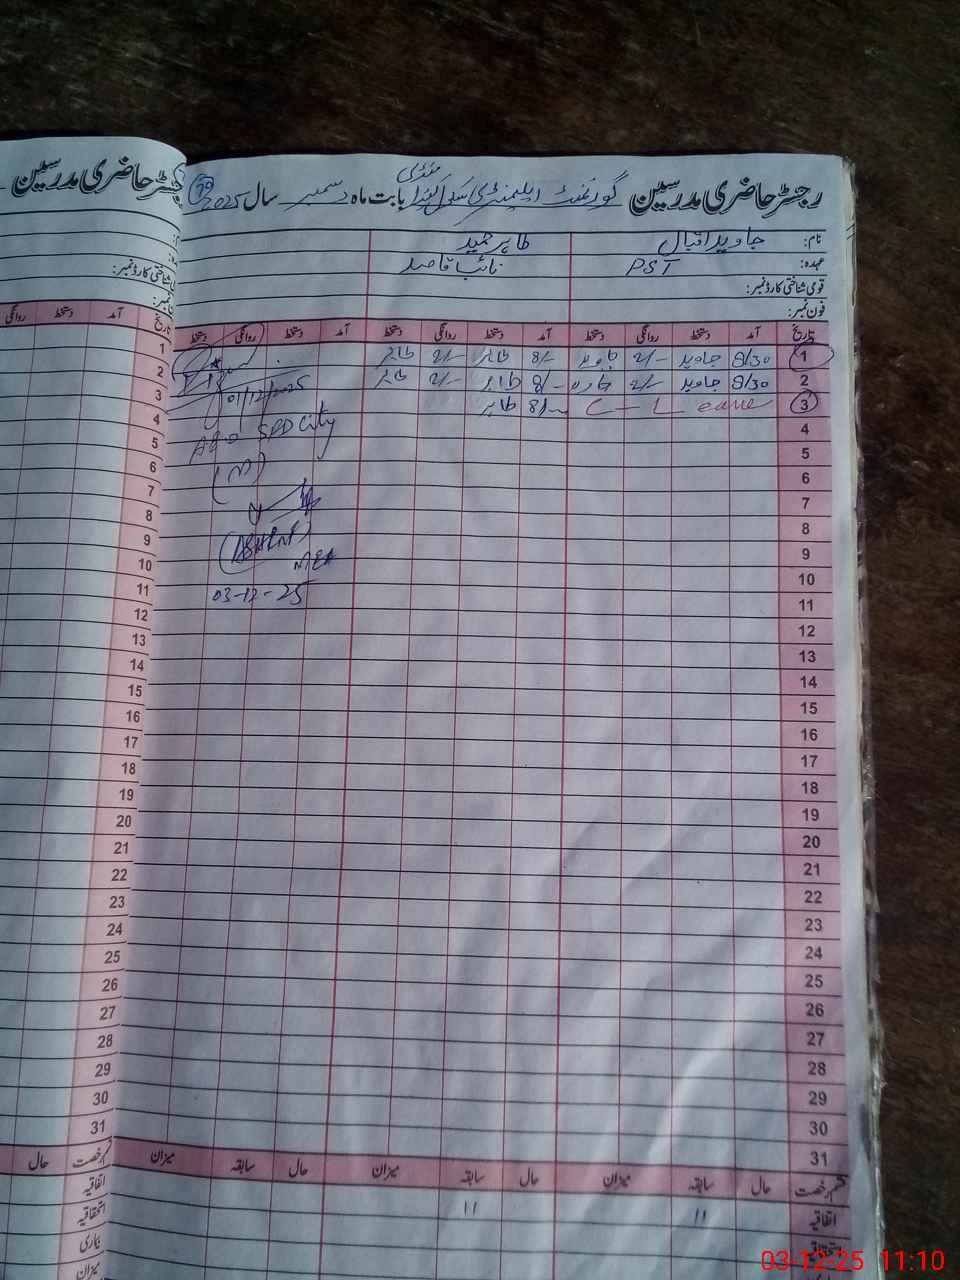 رجسٹر حاضری مدرسین گورنمنٹ ایلیمنٹری سکول بابت ماہ دسمبر سال 2025
نام: جاوید اقبال طاہر حمید
عہدہ: PST نائب قاصد
قومی شناختی کارڈ نمبر:
فون نمبر:
تاریخ آمد دستخط روانگی دستخط آمد دستخط روانگی دستخط آمد دستخط روانگی دستخط
1 8/30 جاوید 2/- جاوید 8/- طاہر 2/- طاہر
2 8/30 جاوید 2/- جاوید 8/- طاہر 2/- طاہر
01/12/2025
3 C-Leave 8/- طاہر
4
City
5
6
7
8
9
MEA
10
03-12-25
11
12
13
14
15
16
17
18
19
20
21
22
23
24
25
26
27
28
29
30
31
قسم رخصت حال سابقہ میزان حال سابقہ میزان حال سابقہ میزان
اتفاقیہ 11 11
استحقاقیہ
رجسٹر حاضری مدرسین
قومی شناختی کارڈ نمبر:
تاریخ آمد دستخط روانگی
1
2
3
4
5
6
7
8
9
10
11
12
13
14
15
16
17
18
19
20
21
22
23
24
25
26
27
28
29
30
31
قسم رخصت حال
اتفاقیہ
استحقاقیہ
بیماری
میزان
03-12-25 11:10